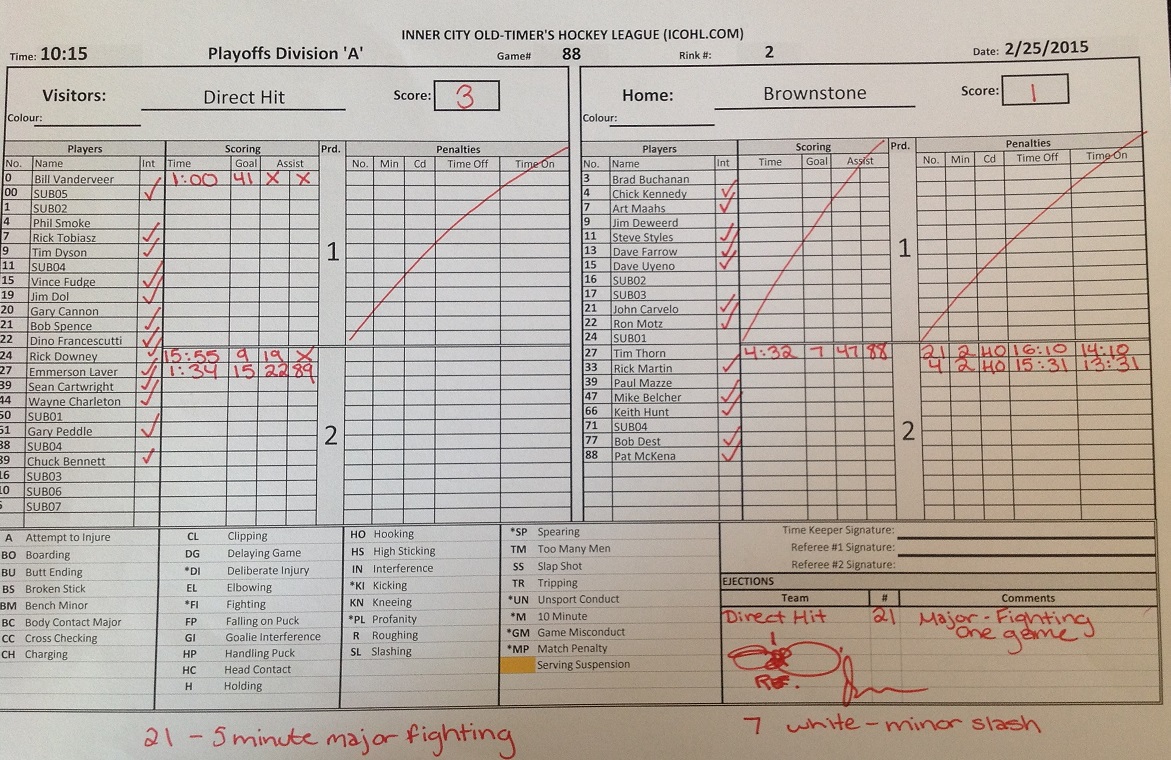 INNER CITY OLD-TIMER'S HOCKEY LEAGUE (ICOHL.COM)
Time: 10:15 Playoffs Division 'A' Game# 88 Rink #: 2 Date: 2/25/2015
Visitors: Direct Hit Score: 3
Colour:
Players Scoring Prd. Penalties
No. Name Int Time Goal Assist No. Min Cd Time Off Time On
0 Bill Vanderveer 1:00 41 X X
00 SUB05 ✓
1 SUB02
4 Phil Smoke
7 Rick Tobiasz ✓
9 Tim Dyson ✓
1
11 SUB04
15 Vince Fudge ✓
19 Jim Dol ✓
20 Gary Cannon ✓
21 Bob Spence ✓
22 Dino Francescutti ✓
24 Rick Downey ✓ 15:55 9 19 X
27 Emmerson Laver ✓ 1:34 15 22 89
39 Sean Cartwright ✓
44 Wayne Charleton ✓
50 SUB01
51 Gary Peddle ✓
2
88 SUB04
89 Chuck Bennett ✓
16 SUB03
10 SUB06
SUB07
Home: Brownstone Score: 1
Colour:
Players Scoring Prd. Penalties
No. Name Int Time Goal Assist No. Min Cd Time Off Time On
3 Brad Buchanan
4 Chick Kennedy ✓
7 Art Maahs ✓
9 Jim Deweerd
11 Steve Styles ✓
13 Dave Farrow ✓
1
15 Dave Uyeno ✓
16 SUB02
17 SUB03
21 John Carvelo ✓
22 Ron Motz ✓
24 SUB01
27 Tim Thorn 4:32 7 47 88 21 2 HO 16:10 14:10
33 Rick Martin ✓ 4 2 HO 15:31 13:31
39 Paul Mazze
47 Mike Belcher ✓
66 Keith Hunt ✓
71 SUB04
2
77 Bob Dest ✓
88 Pat McKena ✓
A Attempt to Injure
BO Boarding
BU Butt Ending
BS Broken Stick
BM Bench Minor
BC Body Contact Major
CC Cross Checking
CH Charging
CL Clipping
DG Delaying Game
*DI Deliberate Injury
EL Elbowing
*FI Fighting
FP Falling on Puck
GI Goalie Interference
HP Handling Puck
HC Head Contact
H Holding
HO Hooking
HS High Sticking
IN Interference
*KI Kicking
KN Kneeing
*PL Profanity
R Roughing
SL Slashing
*SP Spearing
TM Too Many Men
SS Slap Shot
TR Tripping
*UN Unsport Conduct
*M 10 Minute
*GM Game Misconduct
*MP Match Penalty
Serving Suspension
Time Keeper Signature:
Referee #1 Signature:
Referee #2 Signature:
EJECTIONS
Team # Comments
Direct Hit 21 Major - Fighting
one game
REF.
21 - 5 minute major fighting
7 white - minor slash